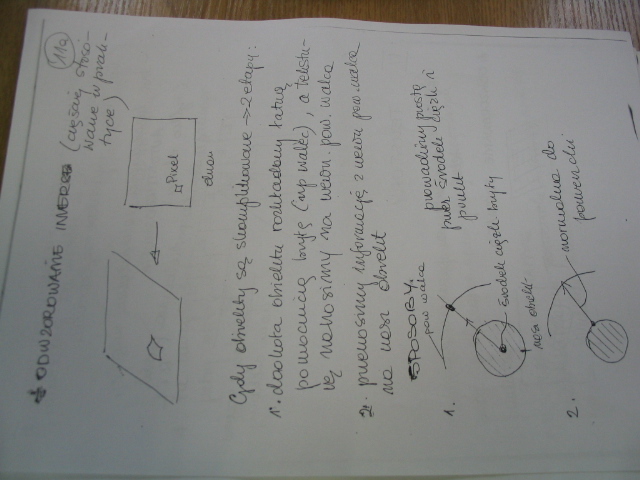 11a
ODWZOROWANIE INVERSE (częściej stoso-
wane w prak-
tyce)
Pixel
ekran
Gdy obiekty są skomplikowane → 2 etapy:
1. dookoła obiektu rozkładamy łatwą
pomocniczą bryłę (np walec), a tekstu-
rę nanosimy na wewn. pow. walca
2. przenosimy informację z wewn pow. walca
na nasz obiekt
SPOSOBY:
1.
pow walca
prowadzimy prostą
przez środek ciężk i
punkt
środek ciężk bryły
nasz obiekt
2.
normalna do
powierzchni